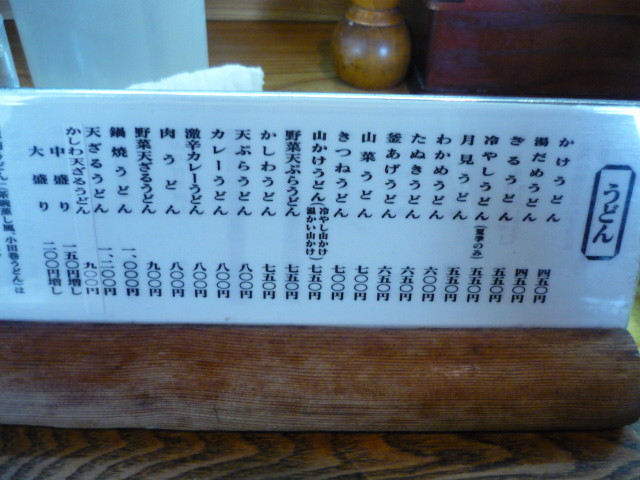 うどん
かけうどん 四五〇円
湯だめうどん 四五〇円
ざるうどん 五五〇円
冷やしうどん(夏季のみ) 五五〇円
月見うどん 五五〇円
わかめうどん 六〇〇円
たぬきうどん 六五〇円
釜あげうどん 六五〇円
山菜うどん 七〇〇円
きつねうどん 七〇〇円
山かけうどん(冷やし山かけ 温かい山かけ) 七五〇円
野菜天ぷらうどん 七五〇円
かしわうどん 七五〇円
天ぷらうどん 八〇〇円
カレーうどん 八〇〇円
激辛カレーうどん 八〇〇円
肉うどん 八〇〇円
野菜天ざるうどん 九〇〇円
鍋焼うどん 一、〇〇〇円
天ざるうどん 一、二〇〇円
かしわ天ざるうどん 九〇〇円
中盛り 一五〇円増し
大盛り 二〇〇円増し
蒸し風、小田巻うどん)は